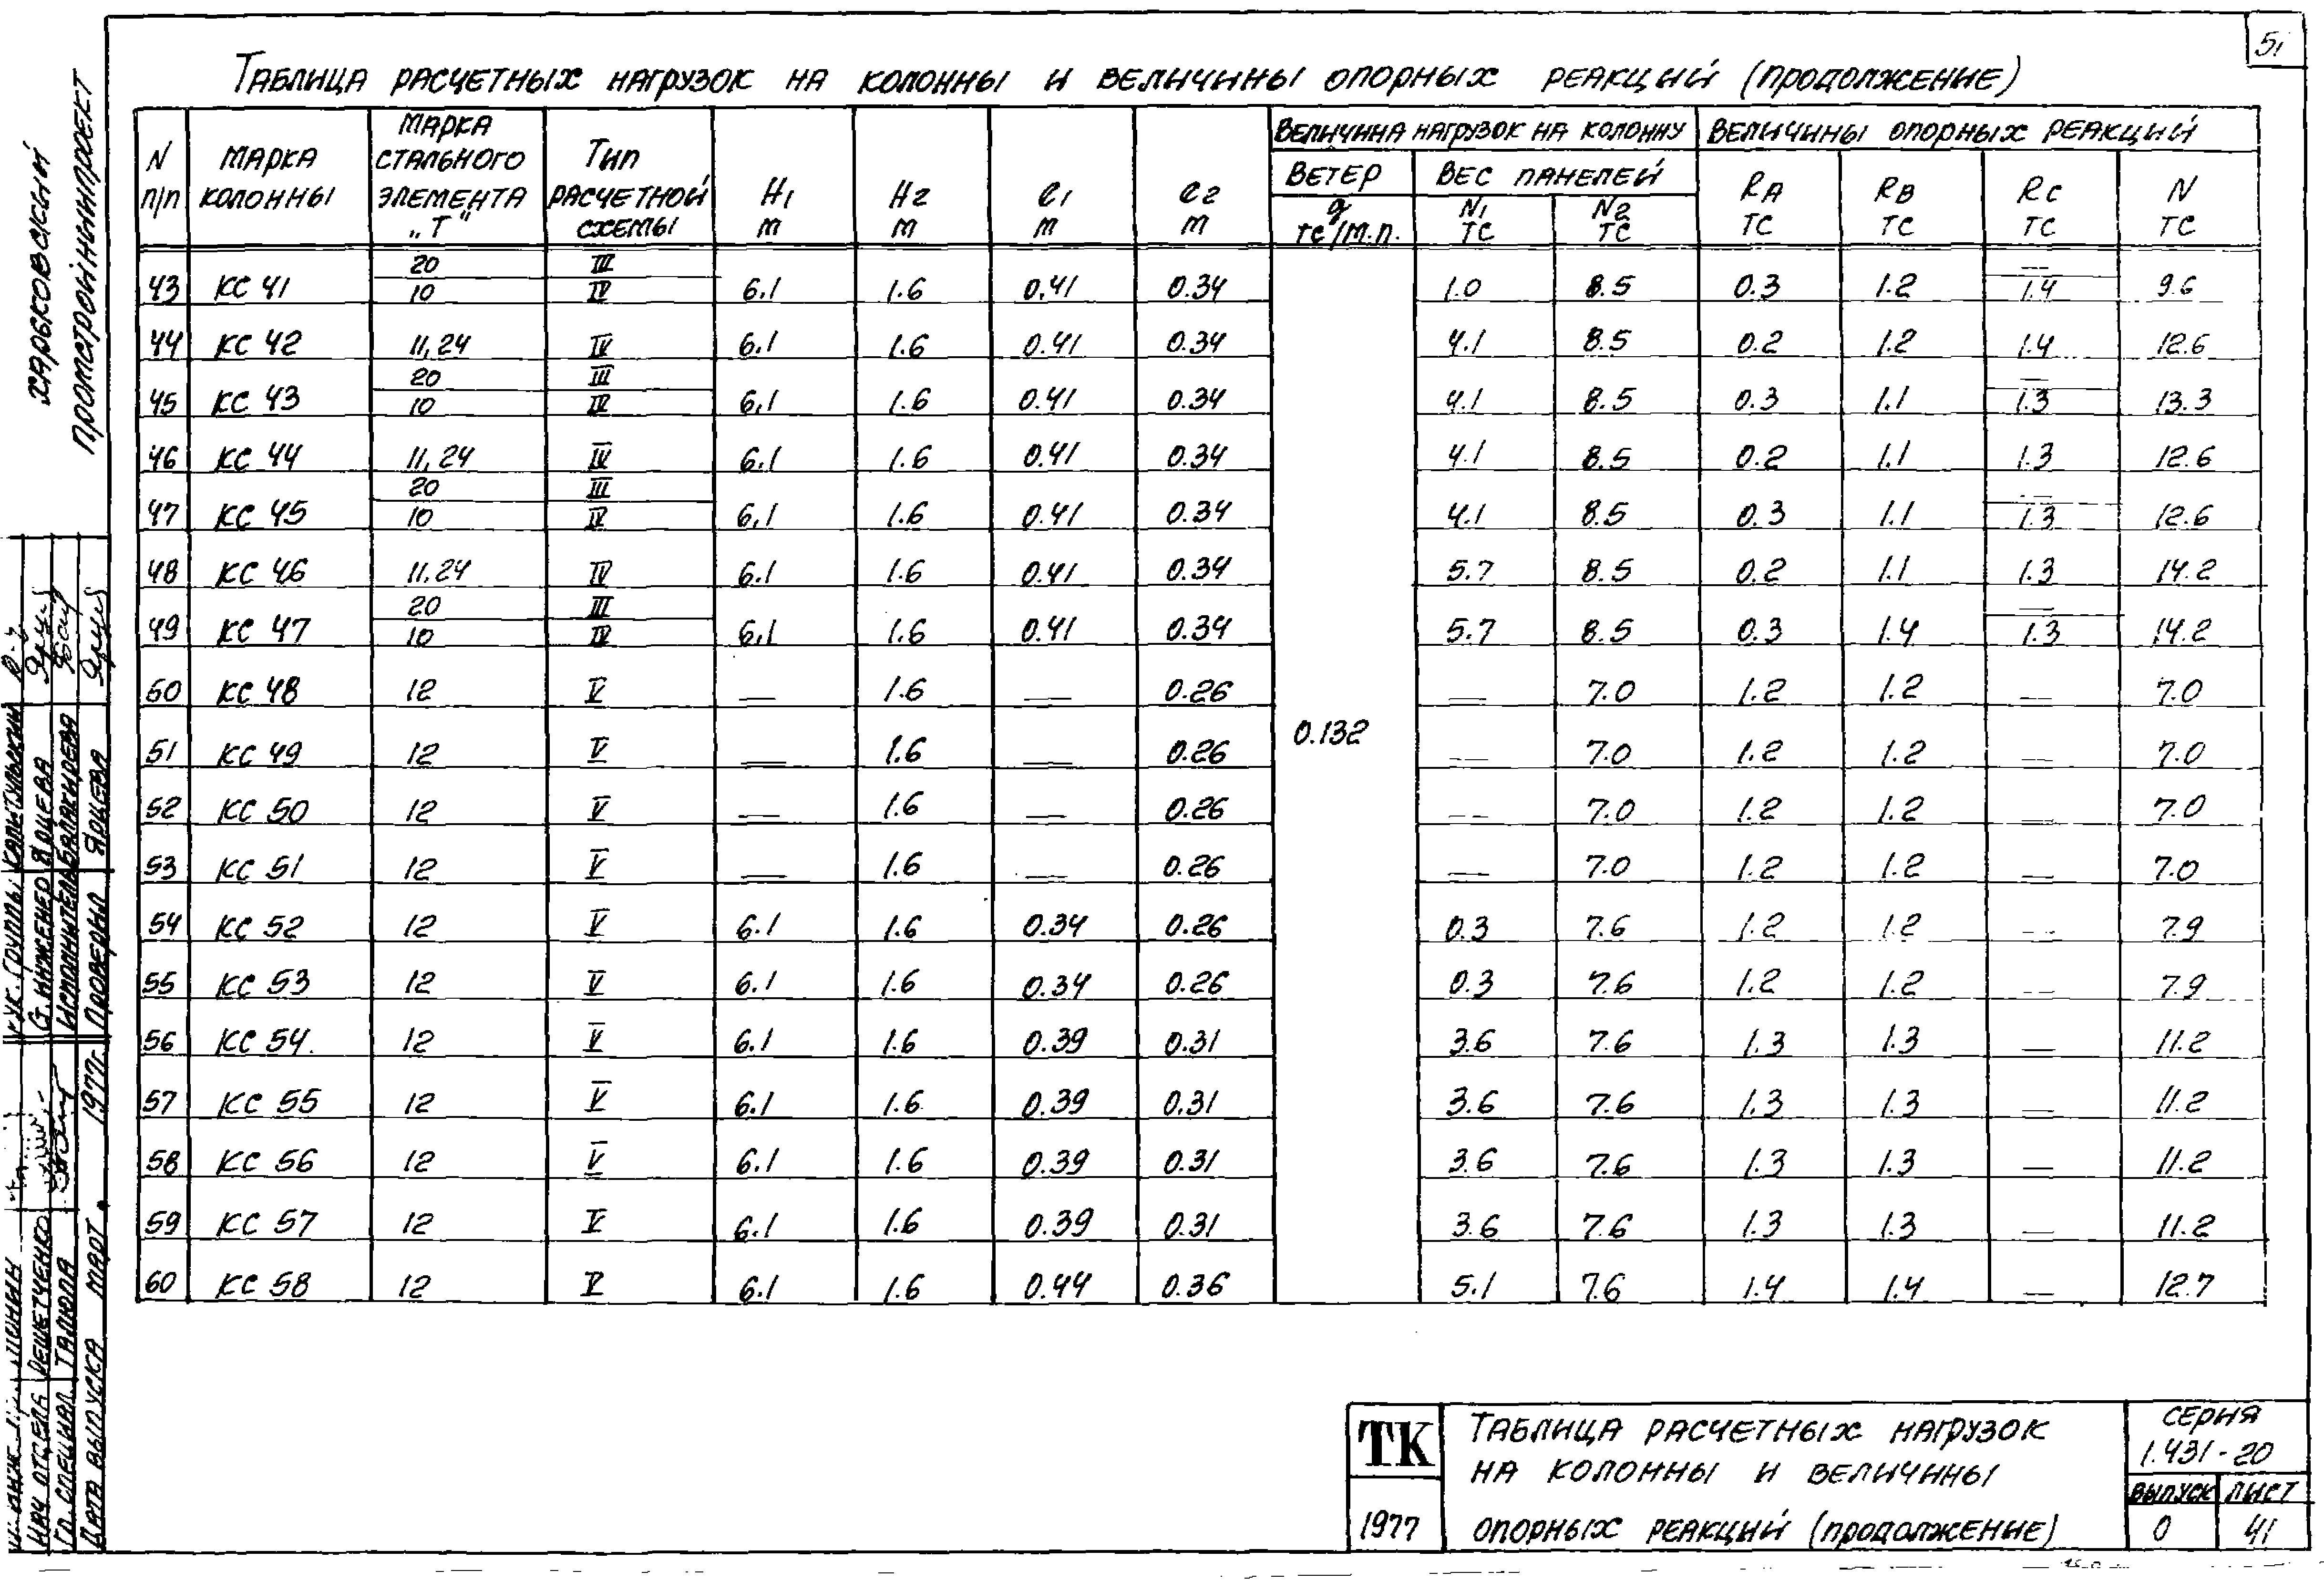 51
Таблица расчетных нагрузок на колонны и величины опорных реакций (продолжение)
N п/п | Марка колонны | Марка стального элемента „Т“ | Тип расчетной схемы | H1 m | H2 m | e1 m | e2 m | Величина нагрузок на колонну | Величины опорных реакций
Ветер | Вес панелей | RA тс | RB тс | RC тс | N тс
q тс/м.п. | N1 тс | N2 тс
43 КС 41 20/10 III/IV 6.1 1.6 0.41 0.34 1.0 8.5 0.3 1.2 —/1.4 9.6
44 КС 42 11,24 IV 6.1 1.6 0.41 0.34 4.1 8.5 0.2 1.2 1.4 12.6
45 КС 43 20/10 III/IV 6.1 1.6 0.41 0.34 4.1 8.5 0.3 1.1 —/1.3 13.3
46 КС 44 11,24 IV 6.1 1.6 0.41 0.34 4.1 8.5 0.2 1.1 1.3 12.6
47 КС 45 20/10 III/IV 6.1 1.6 0.41 0.34 4.1 8.5 0.3 1.1 —/1.3 12.6
48 КС 46 11,24 IV 6.1 1.6 0.41 0.34 5.7 8.5 0.2 1.1 1.3 14.2
49 КС 47 20/10 III/IV 6.1 1.6 0.41 0.34 5.7 8.5 0.3 1.4 —/1.3 14.2
50 КС 48 12 V — 1.6 — 0.26 — 7.0 1.2 1.2 — 7.0
0.132
51 КС 49 12 V — 1.6 — 0.26 — 7.0 1.2 1.2 — 7.0
52 КС 50 12 V — 1.6 — 0.26 — 7.0 1.2 1.2 — 7.0
53 КС 51 12 V — 1.6 — 0.26 — 7.0 1.2 1.2 — 7.0
54 КС 52 12 V 6.1 1.6 0.34 0.26 0.3 7.6 1.2 1.2 — 7.9
55 КС 53 12 V 6.1 1.6 0.34 0.26 0.3 7.6 1.2 1.2 — 7.9
56 КС 54 12 V 6.1 1.6 0.39 0.31 3.6 7.6 1.3 1.3 — 11.2
57 КС 55 12 V 6.1 1.6 0.39 0.31 3.6 7.6 1.3 1.3 — 11.2
58 КС 56 12 V 6.1 1.6 0.39 0.31 3.6 7.6 1.3 1.3 — 11.2
59 КС 57 12 V 6.1 1.6 0.39 0.31 3.6 7.6 1.3 1.3 — 11.2
60 КС 58 12 V 6.1 1.6 0.44 0.36 5.1 7.6 1.4 1.4 — 12.7
ТК
1977
Таблица расчетных нагрузок
на колонны и величины
опорных реакций (продолжение)
серия
1.431-20
выпуск лист
0 41
Харьковский
Промстройниипроект
Рук. группы Кальгульский
Ст. инженер Ярцева
Исполнитель Балакирева
Проверил Ярцева
Нач отдела Решетченко
Гл. специал. Галюпа
Дата выпуска март 1977г.